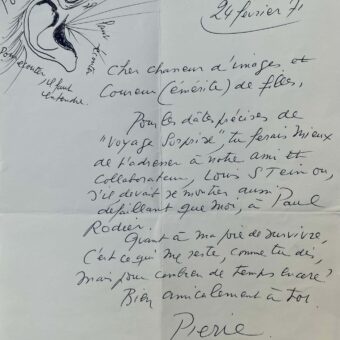 24 février 71
Pour écouter,
il faut
entendre.
Cher chasseur d'images et
Coureur (émérite) de filles,
Pour les dates précises de
"Voyage Surprise", tu ferais mieux
de t'adresser à notre ami et
collaborateur, Louis Stein ou,
s'il devait se montrer aussi
défaillant que moi, à Paul
Rodier.
Quant à ma joie de survivre,
c'est ce qui me reste, comme tu dis,
mais pour combien de temps encore?
Bien amicalement à toi.
Pierre.